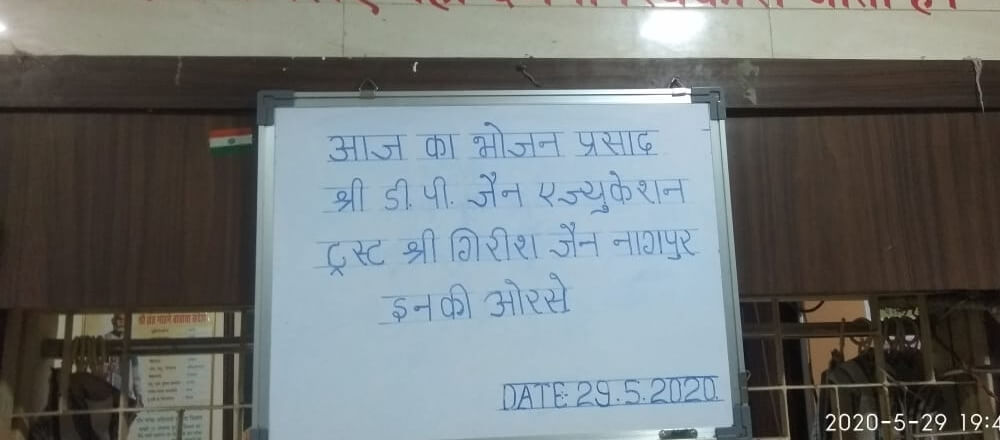 आज का भोजन प्रसाद
श्री डी. पी. जैन एज्युकेशन
ट्रस्ट श्री गिरीश जैन नागपुर
इनकी ओरसे
DATE: 29.5.2020.
2020-5-29 19:4